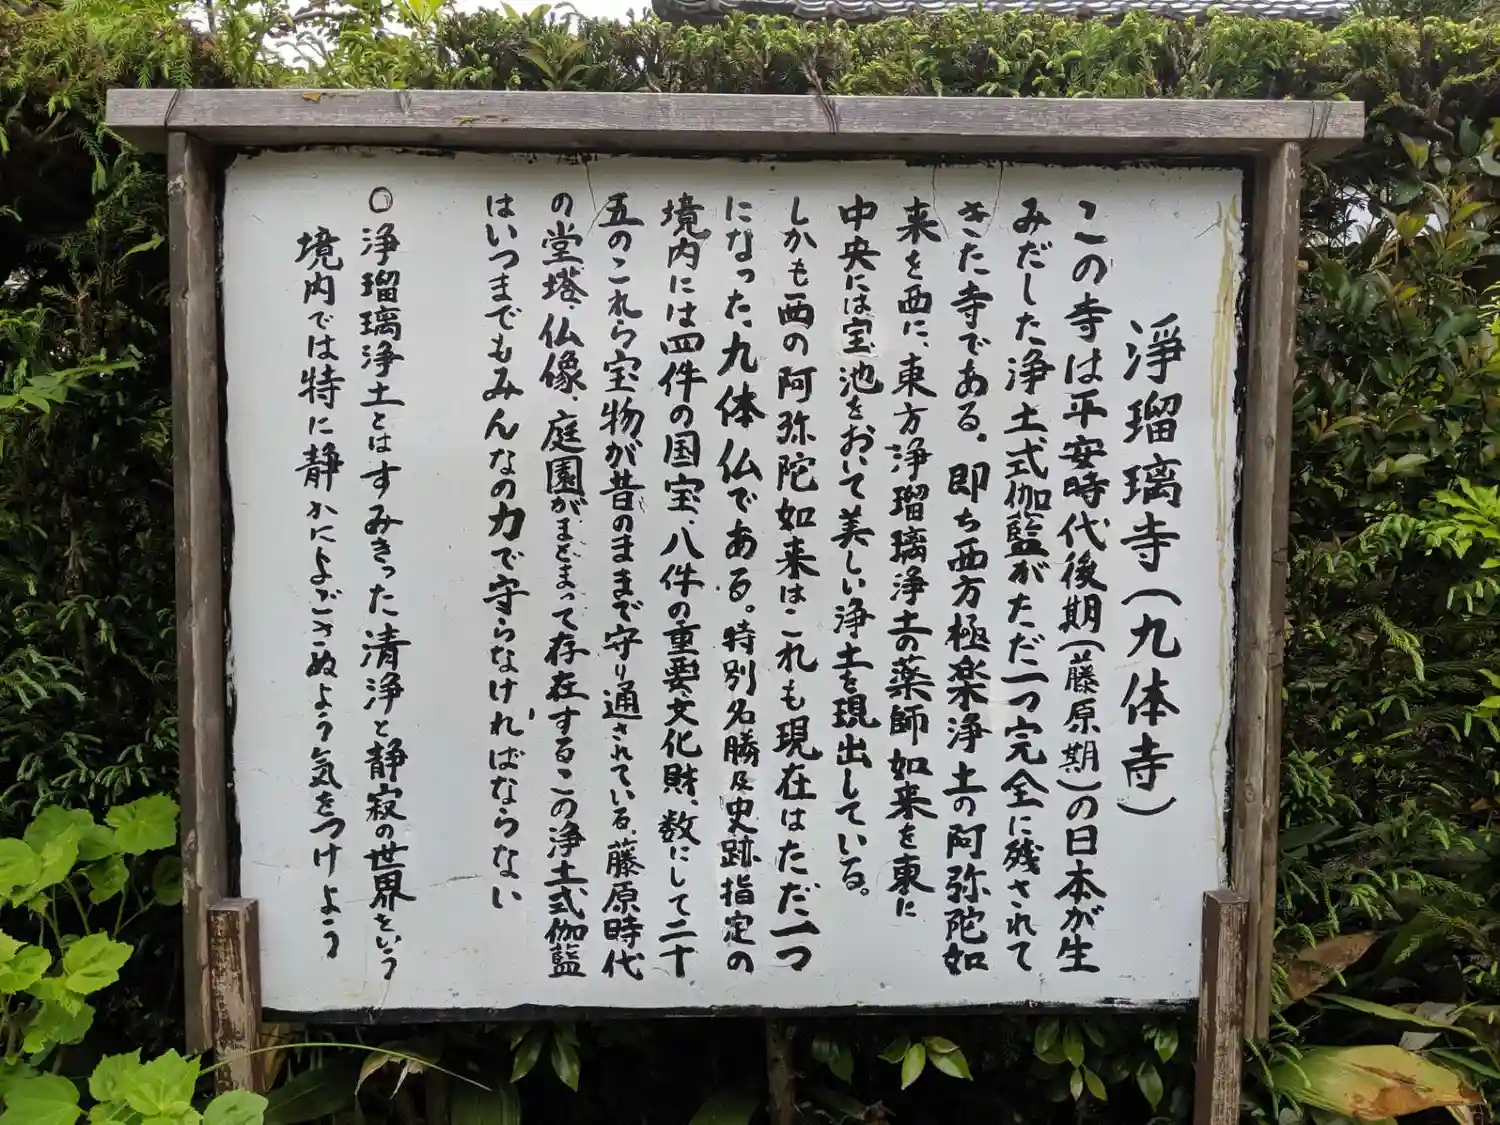 淨瑠璃寺（九体寺）
この寺は平安時代後期（藤原期）の日本が生
みだした浄土式伽藍がただ一つ完全に残されて
きた寺である。即ち西方極楽浄土の阿弥陀如
来を西に、東方浄瑠璃浄土の薬師如来を東に
中央には宝池をおいて美しい浄土を現出している。
しかも西の阿弥陀如来はこれも現在はただ一つ
になった九体仏である。特別名勝及史跡指定の
境内には四件の国宝、八件の重要文化財、数にして二十
五のこれら宝物が昔のままで守り通されている。藤原時代
の堂塔、仏像、庭園がまとまって存在するこの浄土式伽藍
はいつまでもみんなの力で守らなければならない
○浄瑠璃浄土とはすみきった清浄と静寂の世界をいう
境内では特に静かによごさぬよう気をつけよう